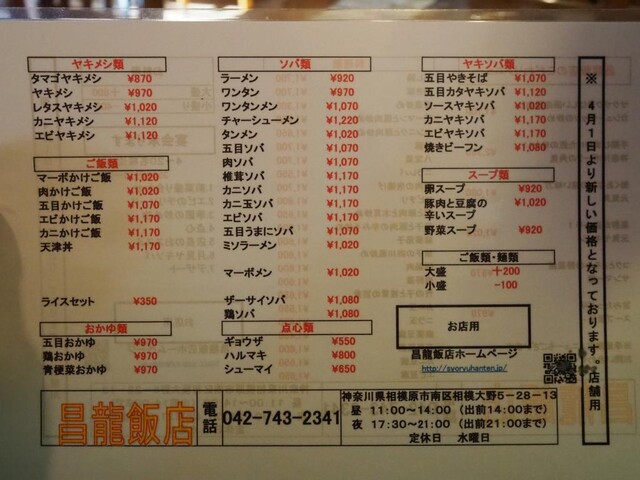 ヤキメシ類
タマゴヤキメシ ¥870
ヤキメシ ¥970
レタスヤキメシ ¥1,020
カニヤキメシ ¥1,120
エビヤキメシ ¥1,120
ご飯類
マーボかけご飯 ¥1,020
肉かけご飯 ¥1,020
五目かけご飯 ¥1,070
エビかけご飯 ¥1,170
カニかけご飯 ¥1,170
天津丼 ¥1,170
ライスセット ¥350
おかゆ類
五目おかゆ ¥970
鶏おかゆ ¥970
青梗菜おかゆ ¥970
ソバ類
ラーメン ¥920
ワンタン ¥970
ワンタンメン ¥1,070
チャーシューメン ¥1,220
タンメン ¥1,020
五目ソバ ¥1,070
肉ソバ ¥1,070
椎茸ソバ ¥1,170
カニソバ ¥1,170
カニ玉ソバ ¥1,170
エビソバ ¥1,170
五目うまにソバ ¥1,170
ミソラーメン ¥1,020
マーボメン ¥1,020
ザーサイソバ ¥1,080
鶏ソバ ¥1,080
点心類
ギョウザ ¥550
ハルマキ ¥800
シューマイ ¥650
ヤキソバ類
五目やきそば ¥1,070
五目カタヤキソバ ¥1,120
ソースヤキソバ ¥1,020
カニヤキソバ ¥1,170
エビヤキソバ ¥1,170
焼きビーフン ¥1,080
スープ類
卵スープ ¥920
豚肉と豆腐の ¥1,020
辛いスープ
野菜スープ ¥920
ご飯類・麺類
大盛 +200
小盛 -100
お店用
昌龍飯店ホームページ
http://syoryuhanten.jp/
※ 4月1日より新しい価格となっております。店舗用
昌龍飯店
電話
042-743-2341
神奈川県相模原市南区相模大野5-28-13
昼 11:00~14:00（出前14:00まで）
夜 17:30~21:00（出前21:00まで）
定休日 水曜日